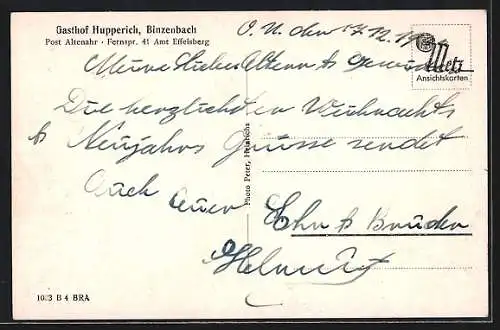 Gasthof Hupperich, Binzenbach
Post Altenahr · Fernspr. 41 Amt Effelsberg
O. U. den 17.12.19
Metz
Ansichtskarten
Meine lieben Eltern & Geschwister
Die herzlichsten Weihnachts
& Neujahrs Grüsse sendet
Euch Euer
Sohn & Bruder
Helmut
Photo Peter, Heinrichs
1023 B 4 BRA